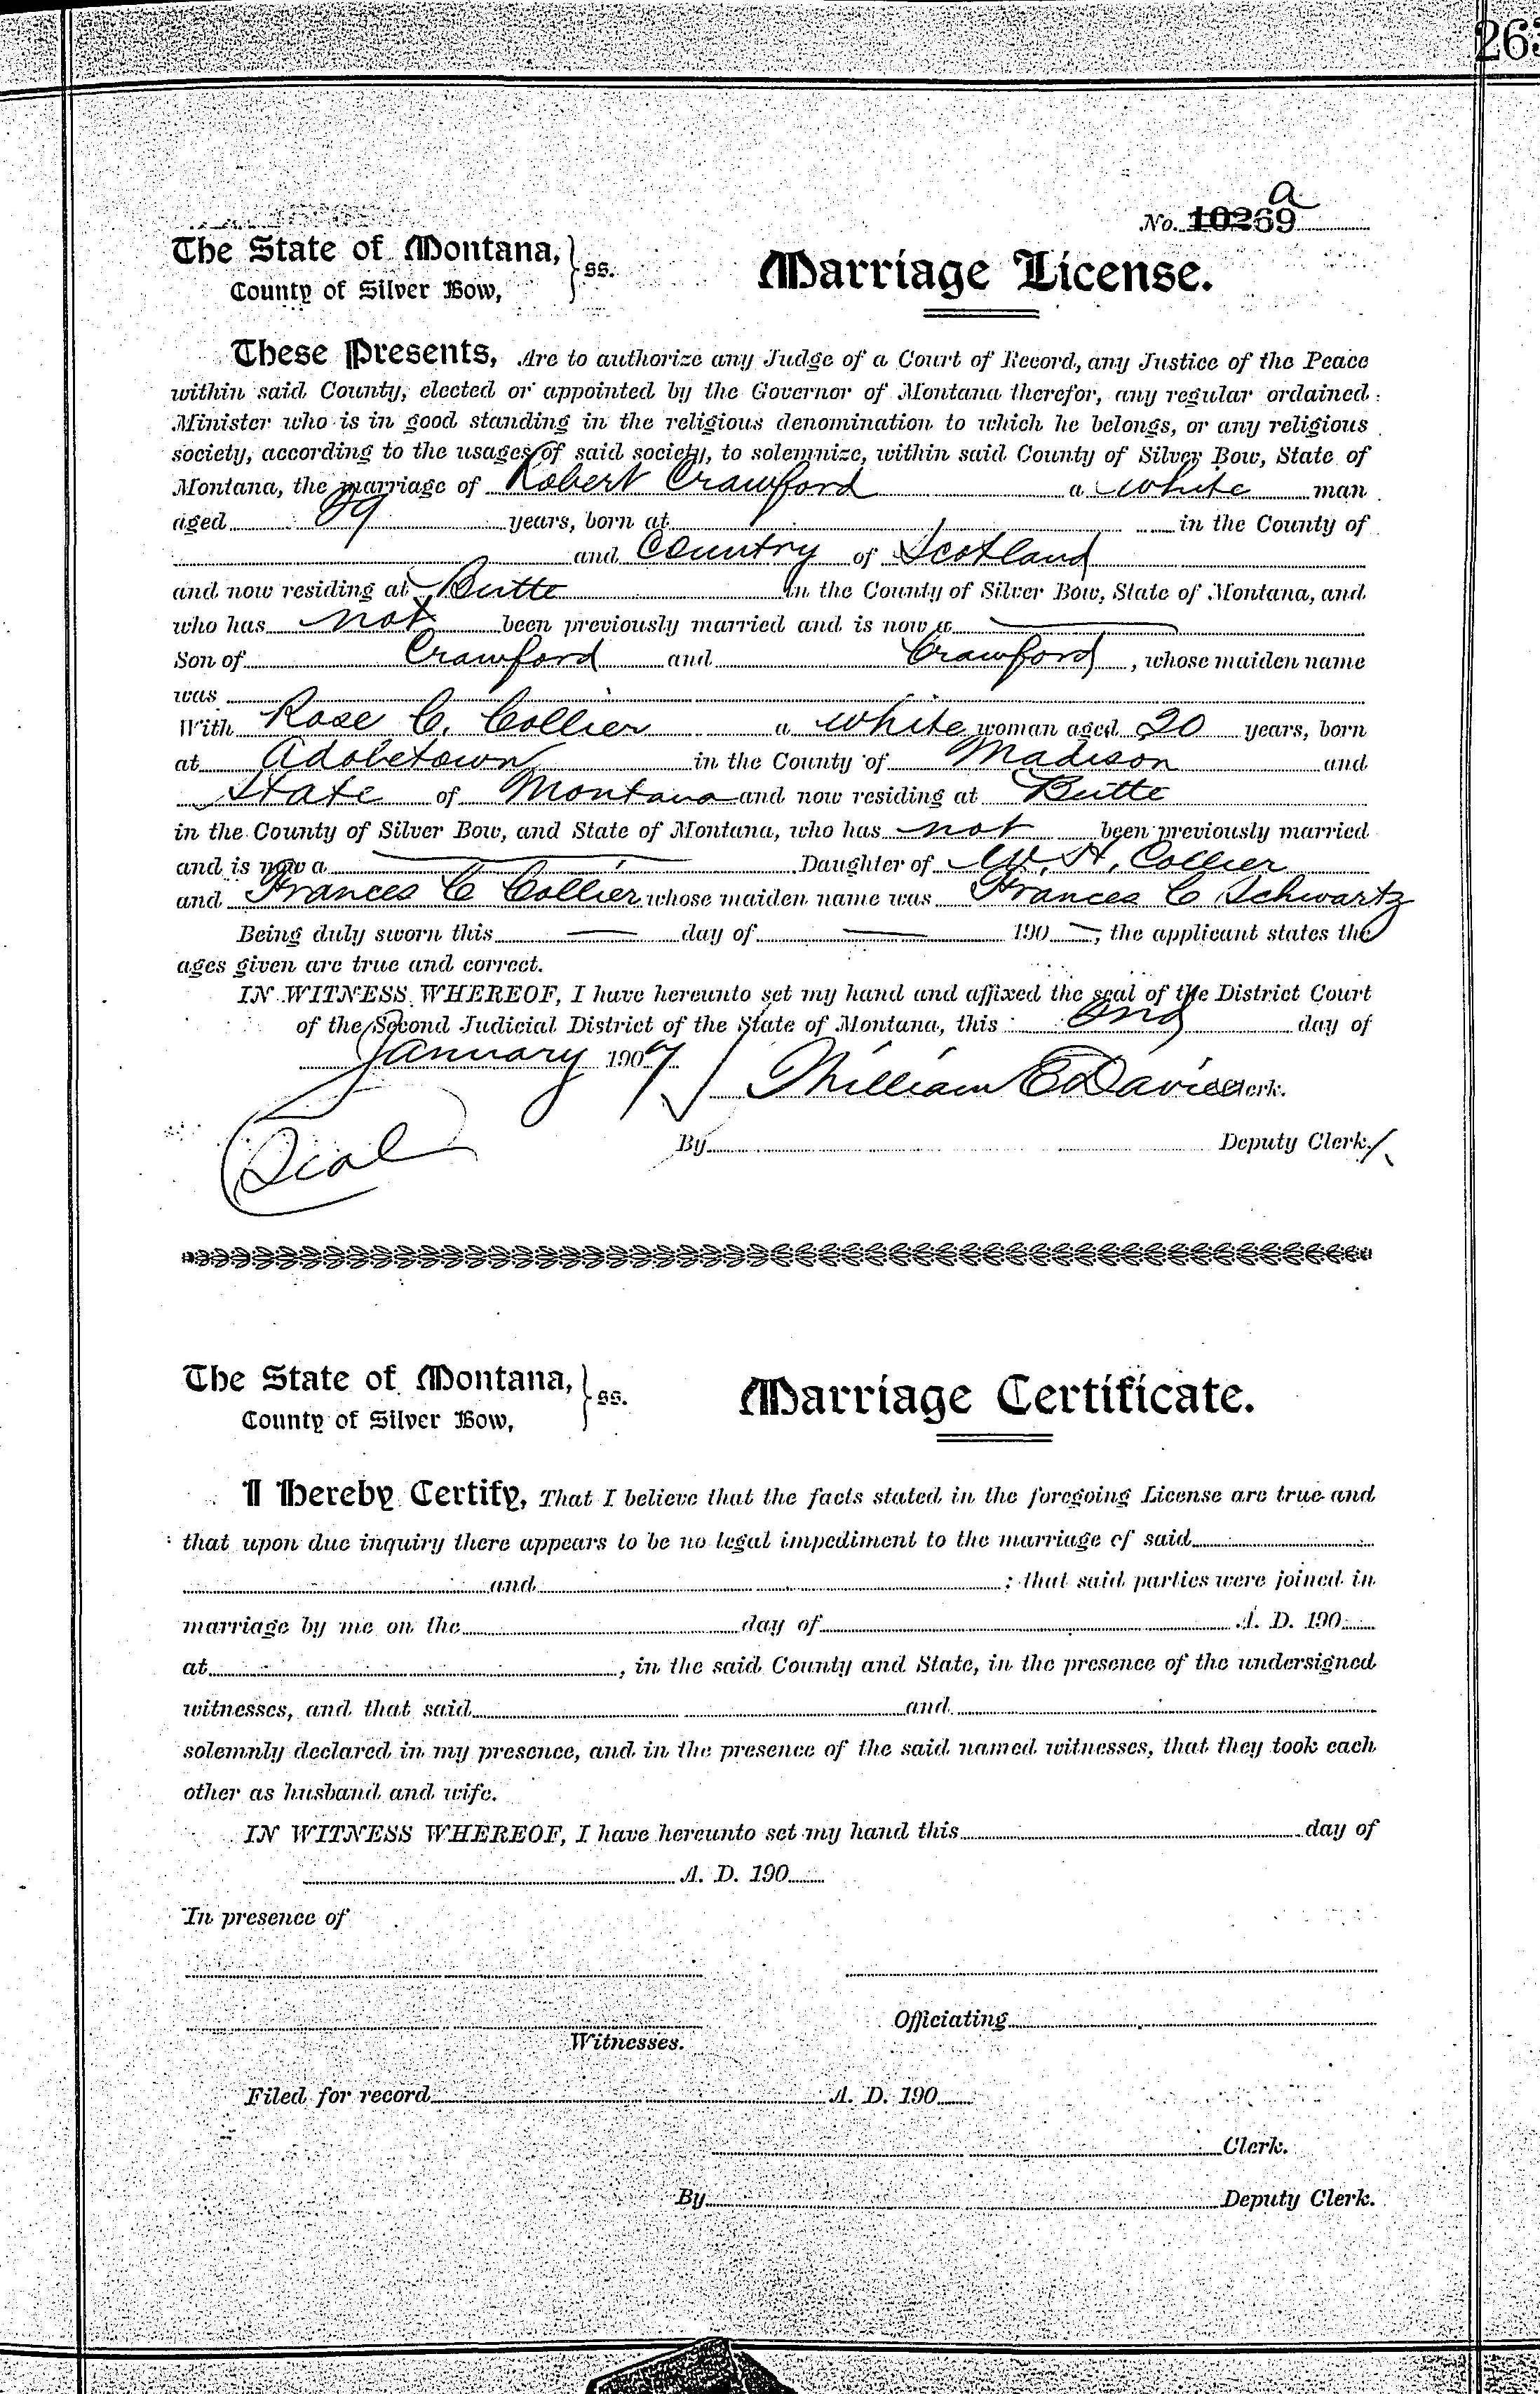 263
a
No. 10269
The State of Montana, } ss.
County of Silver Bow,
Marriage License.
These Presents, Are to authorize any Judge of a Court of Record, any Justice of the Peace
within said County, elected or appointed by the Governor of Montana therefor, any regular ordained
Minister who is in good standing in the religious denomination to which he belongs, or any religious
society, according to the usages of said society, to solemnize, within said County of Silver Bow, State of
Montana, the marriage of Robert Crawford a white man
aged 29 years, born at in the County of
and Country of Scotland
and now residing at Butte in the County of Silver Bow, State of Montana, and
who has not been previously married and is now a —
Son of Crawford and Crawford, whose maiden name
was
With Rose C. Collier a white woman aged 20 years, born
at Adobetown in the County of Madison and
State of Montana and now residing at Butte
in the County of Silver Bow, and State of Montana, who has not been previously married
and is now a — Daughter of W. H. Collier
and Frances C Collier whose maiden name was Frances C Schwartz
Being duly sworn this — day of — 190 —, the applicant states the
ages given are true and correct.
IN WITNESS WHEREOF, I have hereunto set my hand and affixed the seal of the District Court
of the Second Judicial District of the State of Montana, this 2nd day of
January 1907
William E Davies Clerk.
Seal
By Deputy Clerk.
The State of Montana, } ss.
County of Silver Bow,
Marriage Certificate.
I Hereby Certify, That I believe that the facts stated in the foregoing License are true and
that upon due inquiry there appears to be no legal impediment to the marriage of said
and ; that said parties were joined in
marriage by me on the day of A. D. 190
at , in the said County and State, in the presence of the undersigned
witnesses, and that said and
solemnly declared in my presence, and in the presence of the said named witnesses, that they took each
other as husband and wife.
IN WITNESS WHEREOF, I have hereunto set my hand this day of
A. D. 190
In presence of
Officiating
Witnesses.
Filed for record A. D. 190
Clerk.
By Deputy Clerk.